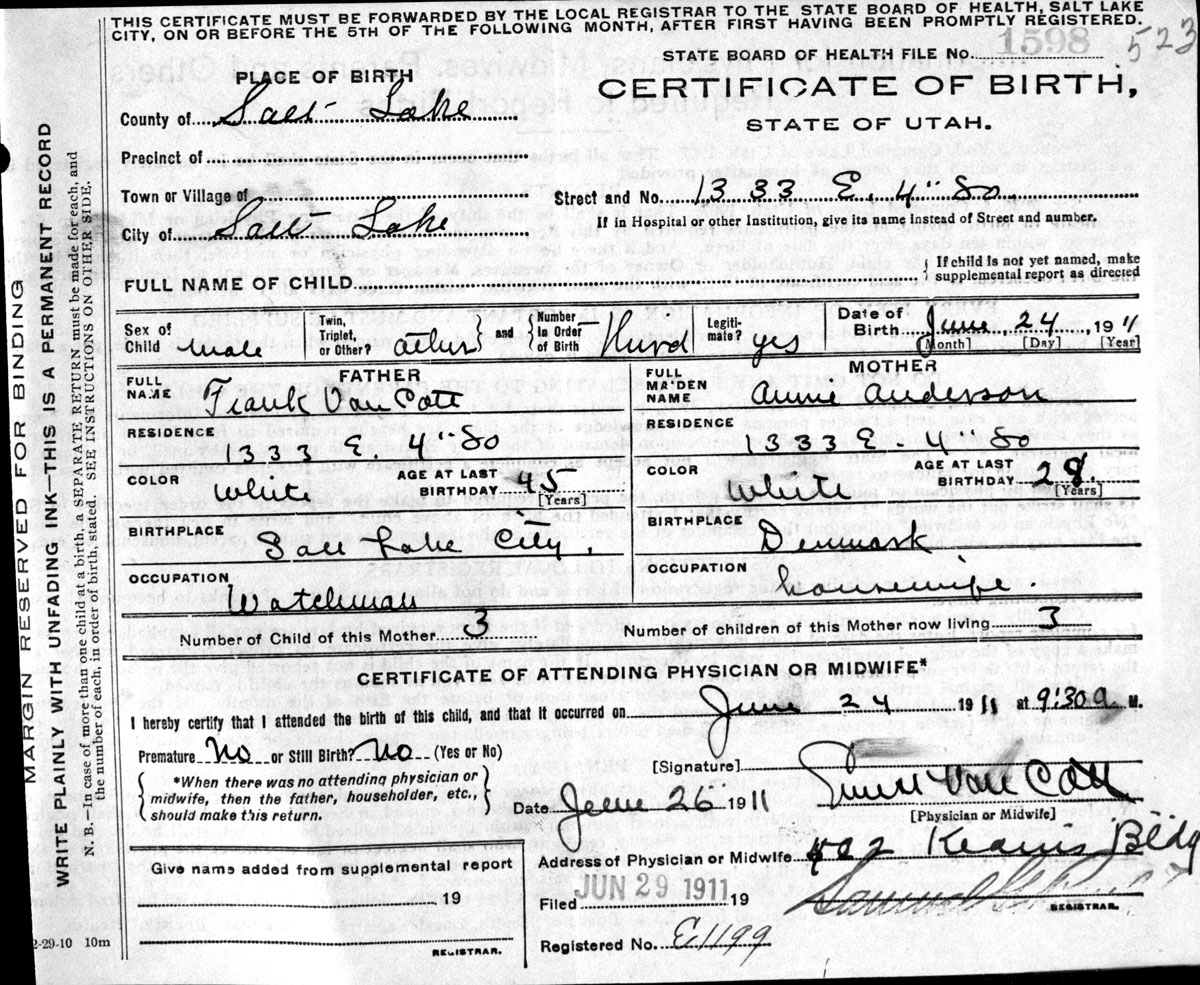 THIS CERTIFICATE MUST BE FORWARDED BY THE LOCAL REGISTRAR TO THE STATE BOARD OF HEALTH, SALT LAKE
CITY, ON OR BEFORE THE 5TH OF THE FOLLOWING MONTH, AFTER FIRST HAVING BEEN PROMPTLY REGISTERED.
523
STATE BOARD OF HEALTH FILE No. 1598
PLACE OF BIRTH
CERTIFICATE OF BIRTH,
STATE OF UTAH.
County of Salt Lake
Precinct of
Town or Village of
Street and No. 1333 E. 4" So
City of Salt Lake
If in Hospital or other Institution, give its name instead of Street and number.
FULL NAME OF CHILD
{ If child is not yet named, make
supplemental report as directed
Sex of Child male
Twin, Triplet, or Other? other } and { Number in Order of Birth Third
Legiti-mate? yes
Date of Birth June 24, 1911
[Month] [Day] [Year]
FATHER
FULL NAME Frank Van Cott
RESIDENCE 1333 E. 4" So
COLOR White
AGE AT LAST BIRTHDAY 45 [Years]
BIRTHPLACE Salt Lake City.
OCCUPATION Watchman
MOTHER
FULL MAIDEN NAME Annie Anderson
RESIDENCE 1333 E. 4" So
COLOR White
AGE AT LAST BIRTHDAY 28 [Years]
BIRTHPLACE Denmark
OCCUPATION housewife.
Number of Child of this Mother 3
Number of children of this Mother now living 3
CERTIFICATE OF ATTENDING PHYSICIAN OR MIDWIFE*
I hereby certify that I attended the birth of this child, and that it occurred on June 24 1911 at 9:30 a M.
Premature No or Still Birth? No (Yes or No)
{ *When there was no attending physician or
midwife, then the father, householder, etc.,
should make this return. }
[Signature] Van Cott
Date June 26 1911
[Physician or Midwife]
Address of Physician or Midwife 402 Kearns Bldg
Give name added from supplemental report
19
REGISTRAR.
Filed JUN 29 1911 19
REGISTRAR.
Registered No. E1199
2-29-10 10m
MARGIN RESERVED FOR BINDING
WRITE PLAINLY WITH UNFADING INK—THIS IS A PERMANENT RECORD
N. B.—In case of more than one child at a birth, a SEPARATE RETURN must be made for each, and
the number of each, in order of birth, stated. SEE INSTRUCTIONS ON OTHER SIDE.